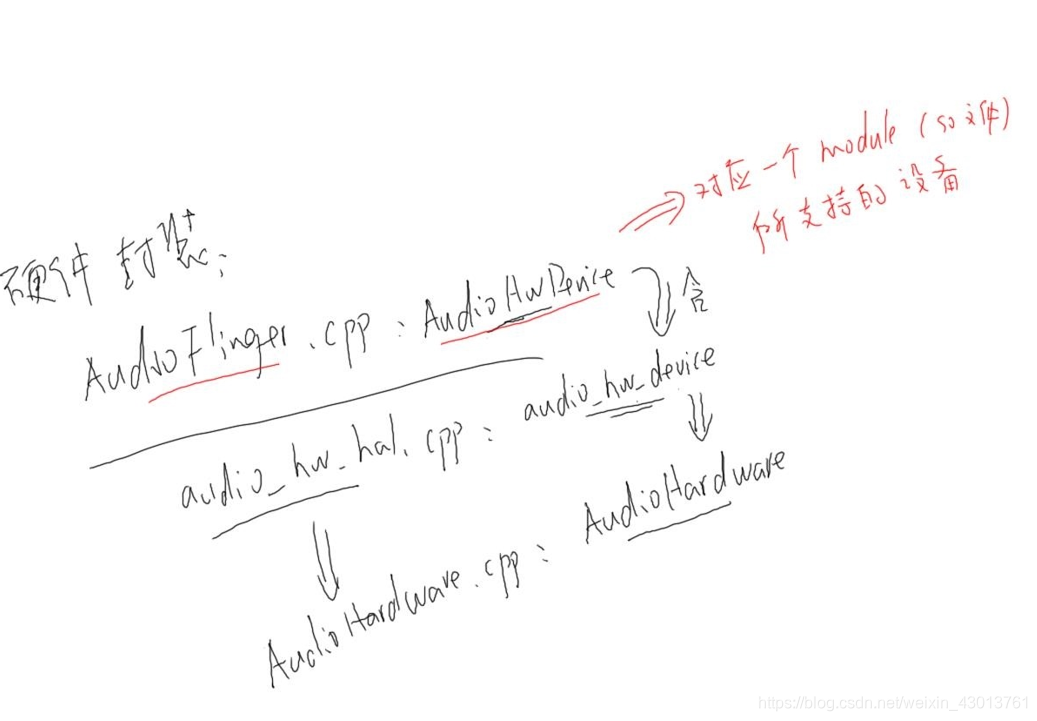 对应一个 module (so文件)
所支持的设备
硬件封装:
AudioFlinger.cpp : AudioHwDevice
含
audio_hw_hal.cpp : audio_hw_device
AudioHardware.cpp : AudioHardware
https://blog.csdn.net/weixin_43013761